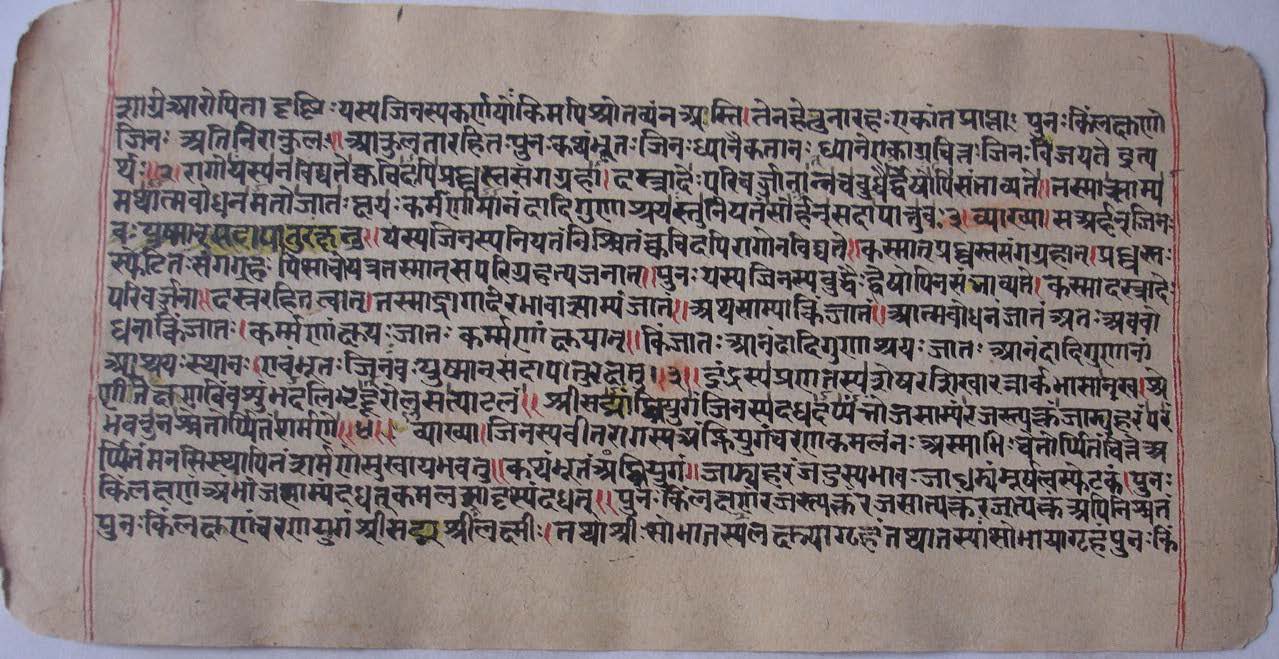 शाग्रेआरोपिता दृष्टिः यस्य जिनस्य कर्णयोः किमपि श्रोतव्यं न अस्ति। तेन हेतुनारहः एकांत प्राप्तः पुनः किंलक्षणो
जिनः अतिनिराकुलः॥ आकुलतारहितः पुनः कथंभूतः जिनः ध्यानैकतानः ध्यानेएकाग्रचित्तः जिनः विजयते इत्य
र्थः॥२॥ रागोयस्यनविद्यतेक्वचिदपिप्रध्वस्तसंगग्रहा। दस्त्रादेः परिवर्जनान्नचबुधैर्द्वेषोपिसंभाव्यते॥ तस्मात्साम्य
मथात्मबोधनमतोजातः क्षयः कर्मणामानंदादिगुणाश्रयस्तुनियतंसोर्हन्सदापातुवः ३। व्याख्या। सअर्हन्जिनः
वः युष्मान्सदापातुरक्षतु॥ यस्यजिनस्यनियतंनिश्चितंक्वचिदपिरागोनविद्यते। कस्मात्प्रध्वस्तसंगग्रहात्। प्रध्वस्तः
स्फेटितः संगग्रहः पिसाचो सपरिग्रहत्यजनात्॥ पुनः यस्यजिनस्यबुद्वैः द्वेषोपिनसंभाव्यते। कस्मादस्त्रादेः
परिवर्जना॥ दस्त्ररहितत्वात्। तस्माद्रागाद्वेरभावात्साम्यंजातं॥ अथसाम्यात्किंजातं। आत्मबोधनंजातं अतः अवबो
धनात्किंजातः। कर्म्मणांक्षयः जातः कर्म्मणांक्षयात्॥ किंजातः आनंदादिगुणाश्रयः जातः आनंदादिगुणानां
आश्रयः स्थानः। एवंभूतः जिनंवः युष्मान्सदापातुरक्षतु॥३॥ इंद्रस्यप्रणतस्यशेषरशिखारत्नार्कभासानख। श्रे
णीतेक्षणबिंबशुंभदलिभृद्दूरोल्लसत्पाटलं॥ श्रीसद्मांह्रियुगंजिनस्यदधदप्यंभोजसाम्यंरजस्त्यक्तंजाड्यहरंपरं
भवतुनश्चेतोर्प्पितंशर्मणे॥४॥ व्याख्या। जिनस्यवीतरागस्यअंह्रियुगंचरणकमलंनः अस्माभिः चेतोर्प्पितंचित्तेअ
र्प्पितंमनसिस्थापितंशर्मणेसुखायभवतु॥ कथंभूतंअंह्रियुगं॥ जाड्यहरंजडस्यभावः जाड्यंमूर्षत्वस्फेटकं। पुनः
किंलक्षणंअंभोजसाम्यंदधत्कमलसादृस्यदधत्॥ पुनः किंलक्षणंरजस्त्यक्तंरजसात्यक्तंरजत्यक्तंअपिनिश्चितं
पुनः किंलक्षणंचरणयुगंश्रीसद्मश्रीलक्ष्मीः। तथाश्रीःसोभातस्यलक्ष्म्यागृहंतथातस्यांसोभायागृहंपुनः किं